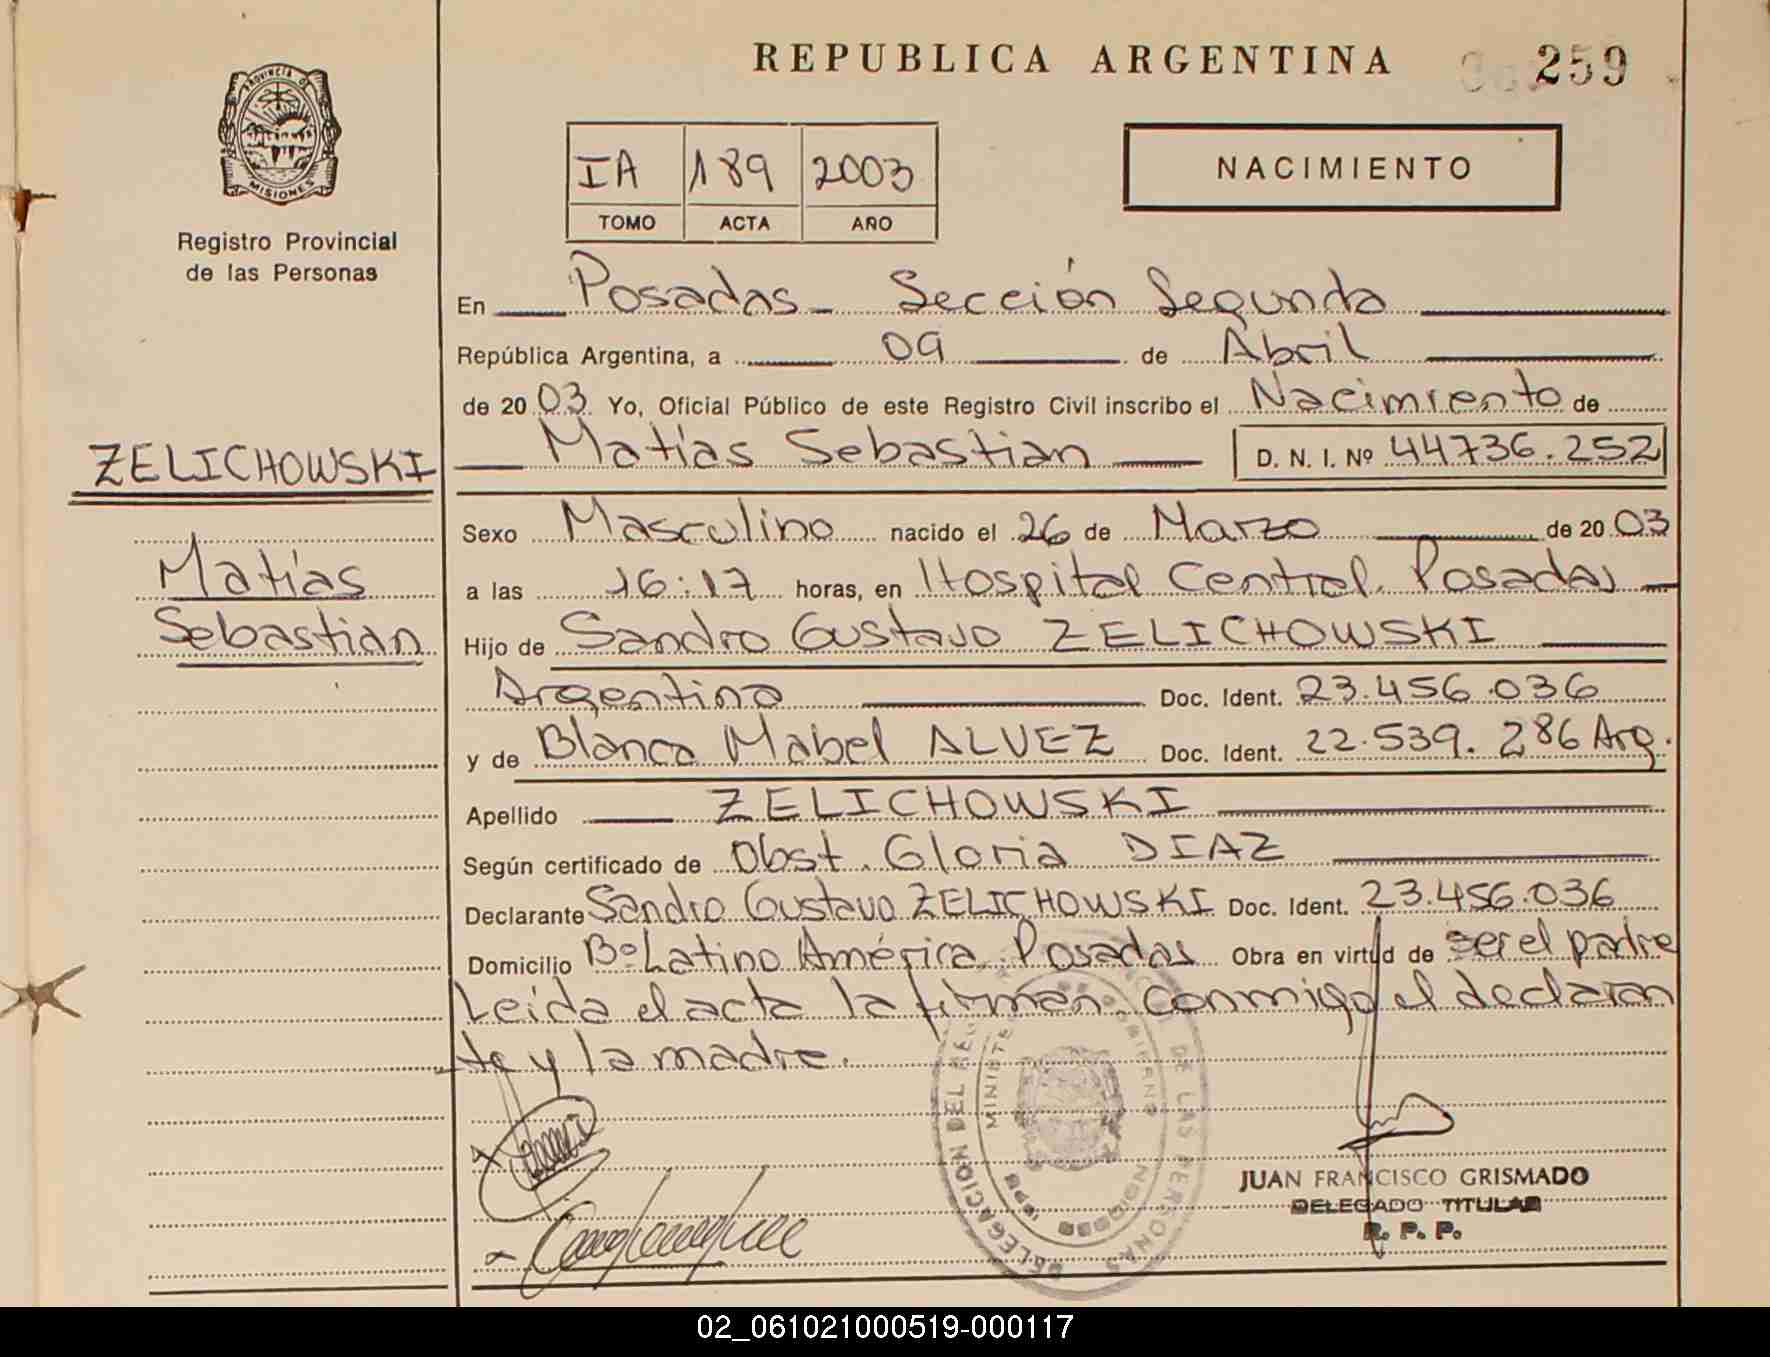 REPUBLICA ARGENTINA 259
PROVINCIA DE
MISIONES
Registro Provincial
de las Personas
IA 189 2003
TOMO ACTA AÑO
NACIMIENTO
En Posadas - Sección Segunda
República Argentina, a 09 de Abril
de 2003 Yo, Oficial Público de este Registro Civil inscribo el Nacimiento de
Matías Sebastian D. N. I. Nº 44736.252
ZELICHOWSKI
Matías
Sebastian
Sexo Masculino nacido el 26 de Marzo de 2003
a las 16:17 horas, en Hospital Central. Posadas
Hijo de Sandro Gustavo ZELICHOWSKI
Argentino Doc. Ident. 23.456.036
y de Blanca Mabel ALVEZ Doc. Ident. 22.539.286 Arg.
Apellido ZELICHOWSKI
Según certificado de Obst. Gloria DIAZ
Declarante Sandro Gustavo ZELICHOWSKI Doc. Ident. 23.456.036
Domicilio Bº Latino América. Posadas Obra en virtud de ser el padre
Leída el acta la firman conmigo el declaran
te y la madre.
DELEGACION DEL DE LAS PERSONAS
JUAN FRANCISCO GRISMADO
DELEGADO TITULAR
R. P. P.
02_061021000519-000117